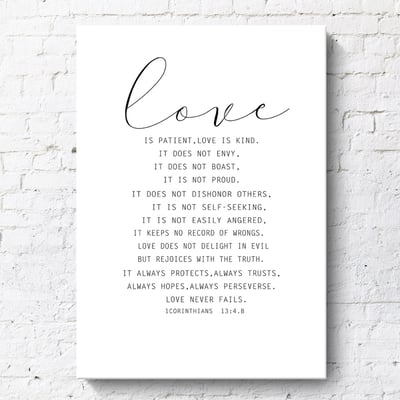 love
IS PATIENT,LOVE IS KIND.
IT DOES NOT ENVY,
IT DOES NOT BOAST,
IT IS NOT PROUD.
IT DOES NOT DISHONOR OTHERS,
IT IS NOT SELF-SEEKING.
IT IS NOT EASILY ANGERED,
IT KEEPS NO RECORD OF WRONGS.
LOVE DOES NOT DELIGHT IN EVIL
BUT REJOICES WITH THE TRUTH.
IT ALWAYS PROTECTS,ALWAYS TRUSTS,
ALWAYS HOPES,ALWAYS PERSEVERE.
LOVE NEVER FAILS.
1CORINTHIANS 13:4.8